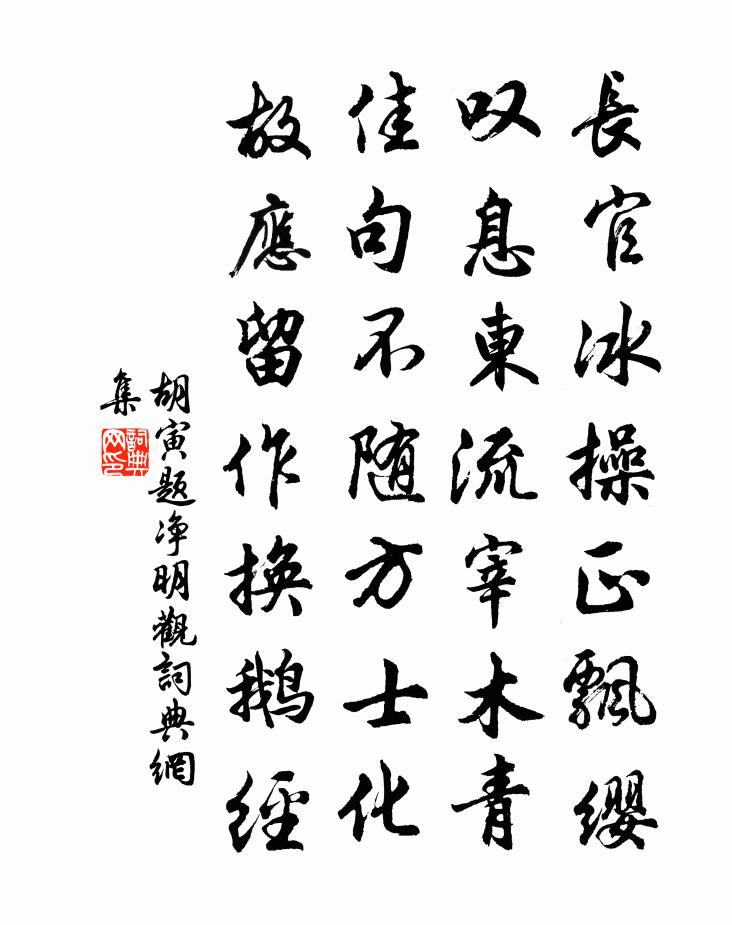 長官冰操正飄缨
叹息東流宰木青
佳句不随方士化
故應留作換鵝經
胡寅题净明觀詞典網
集
詞典
网印